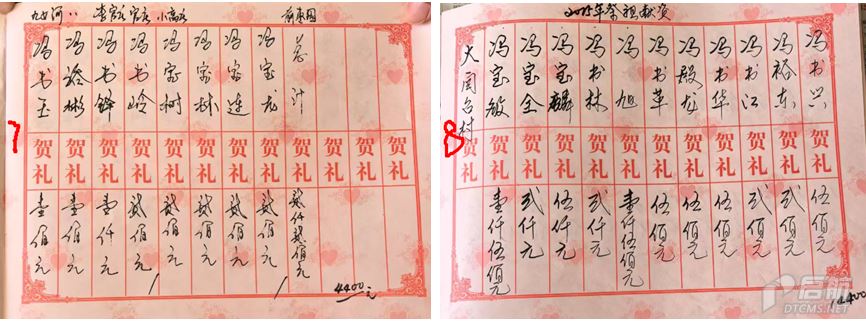 小高庄
7
冯书玉 贺礼 壹佰元
冯裕彬 贺礼 壹佰元
冯书锋 贺礼 壹仟元
冯书岭 贺礼 贰佰元
冯宝树 贺礼 贰佰元
冯宝林 贺礼 贰佰元
冯宝连 贺礼 贰佰元
冯宝龙 贺礼 贰佰元
总计 贺礼 贰仟贰佰元
贺礼
贺礼
4400元
2015年祭祖献资
8
大闫台村 贺礼
冯宝敏 贺礼 壹仟伍佰元
冯宝全 贺礼 弍仟元
冯宝麟 贺礼 伍佰元
冯书林 贺礼 弍仟元
冯旭 贺礼 壹仟伍佰元
冯书革 贺礼 伍佰元
冯殿龙 贺礼 伍佰元
冯书华 贺礼 伍佰元
冯书江 贺礼 弍佰元
冯裕东 贺礼 弍佰元
冯书兴 贺礼 伍佰元
启航
DTCMS.NET